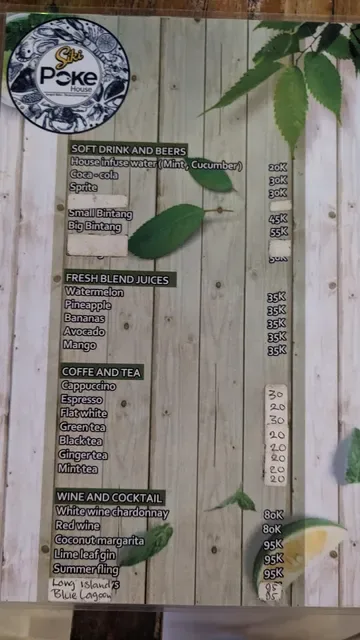 Siki
Poke
House
SOFT DRINK AND BEERS
House infuse water (Mint, Cucumber) 20K
Coca - cola 30K
Sprite 30K
Small Bintang 45K
Big Bintang 55K
FRESH BLEND JUICES
Watermelon 35K
Pineapple 35K
Bananas 35K
Avocado 35K
Mango 35K
COFFE AND TEA
Cappuccino 30
Espresso 20
Flat white 30
Green tea 20
Black tea 20
Ginger tea 20
Mint tea 20
WINE AND COCKTAIL
White wine chardonnay 80K
Red wine 80K
Coconut margarita 95K
Lime leaf gin 95K
Summer fling 95K
Long Island
Blue Lagoon